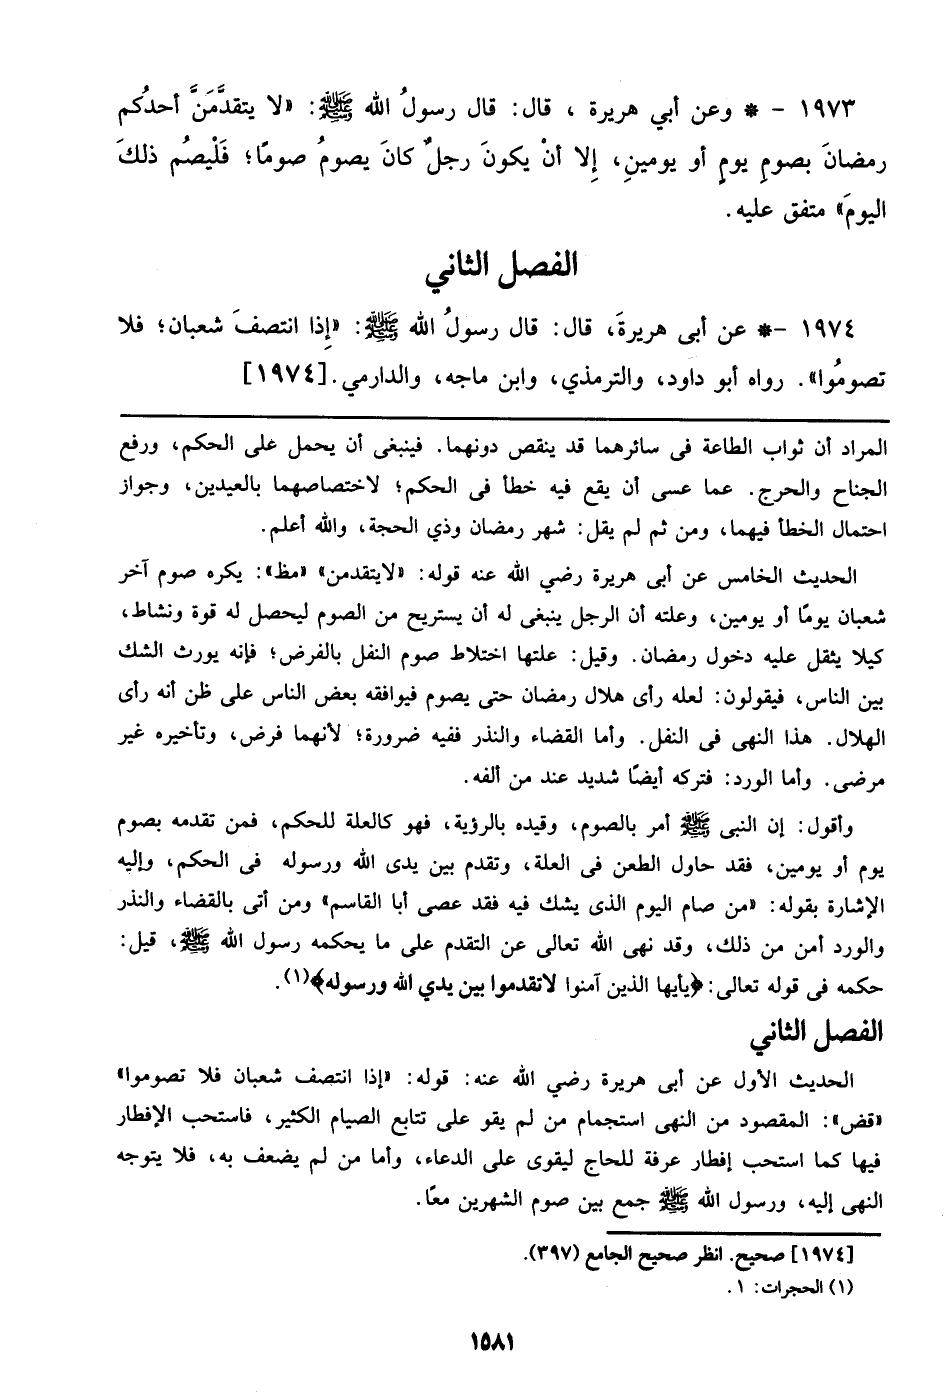 ١٩٧٣ - * وعن أبي هريرة ، قال: قال رسولُ الله ﷺ: «لا يتقدَّمَنَّ أحدُكم
رمضانَ بصومِ يومٍ أو يومينِ، إِلا أنْ يكونَ رجلٌ كانَ يصومُ صومًا؛ فَلْيصُم ذلكَ
اليومَ» متفق عليه.
الفصل الثاني
١٩٧٤ -* عن أبى هريرةَ، قال: قال رسولُ الله ﷺ: «إِذا انتصفَ شعبان؛ فلا
تصومُوا». رواه أبو داود، والترمذي، وابن ماجه، والدارمي.[١٩٧٤]
المراد أن ثواب الطاعة فى سائرهما قد ينقص دونهما. فينبغى أن يحمل على الحكم، ورفع
الجناح والحرج. عما عسى أن يقع فيه خطأ فى الحكم؛ لاختصاصهما بالعيدين، وجواز
احتمال الخطأ فيهما، ومن ثم لم يقل: شهر رمضان وذي الحجة، والله أعلم.
الحديث الخامس عن أبى هريرة رضي الله عنه قوله: «لايتقدمن» «مظ»: يكره صوم آخر
شعبان يومًا أو يومين، وعلته أن الرجل ينبغى له أن يستريح من الصوم ليحصل له قوة ونشاط،
كيلا يثقل عليه دخول رمضان. وقيل: علتها اختلاط صوم النفل بالفرض؛ فإنه يورث الشك
بين الناس، فيقولون: لعله رأى هلال رمضان حتى يصوم فيوافقه بعض الناس على ظن أنه رأى
الهلال. هذا النهى فى النفل. وأما القضاء والنذر ففيه ضرورة؛ لأنهما فرض، وتأخيره غير
مرضى. وأما الورد: فتركه أيضًا شديد عند من ألفه.
وأقول: إن النبى ﷺ أمر بالصوم، وقيده بالرؤية، فهو كالعلة للحكم، فمن تقدمه بصوم
يوم أو يومين، فقد حاول الطعن فى العلة، وتقدم بين يدى الله ورسوله فى الحكم، وإليه
الإشارة بقوله: «من صام اليوم الذى يشك فيه فقد عصى أبا القاسم» ومن أتى بالقضاء والنذر
والورد أمن من ذلك، وقد نهى الله تعالى عن التقدم على ما يحكمه رسول الله ﷺ، قيل:
حكمه فى قوله تعالى: ﴿يأيها الذين آمنوا لاتقدموا بين يدي الله ورسوله﴾(١).
الفصل الثاني
الحديث الأول عن أبى هريرة رضي الله عنه: قوله: «إذا انتصف شعبان فلا تصوموا»
«قض»: المقصود من النهى استجمام من لم يقو على تتابع الصيام الكثير، فاستحب الإفطار
فيها كما استحب إفطار عرفة للحاج ليقوى على الدعاء، وأما من لم يضعف به، فلا يتوجه
النهى إليه، ورسول الله ﷺ جمع بين صوم الشهرين معًا.
[١٩٧٤] صحيح. انظر صحيح الجامع (٣٩٧).
(١) الحجرات: ١.
١٥٨١